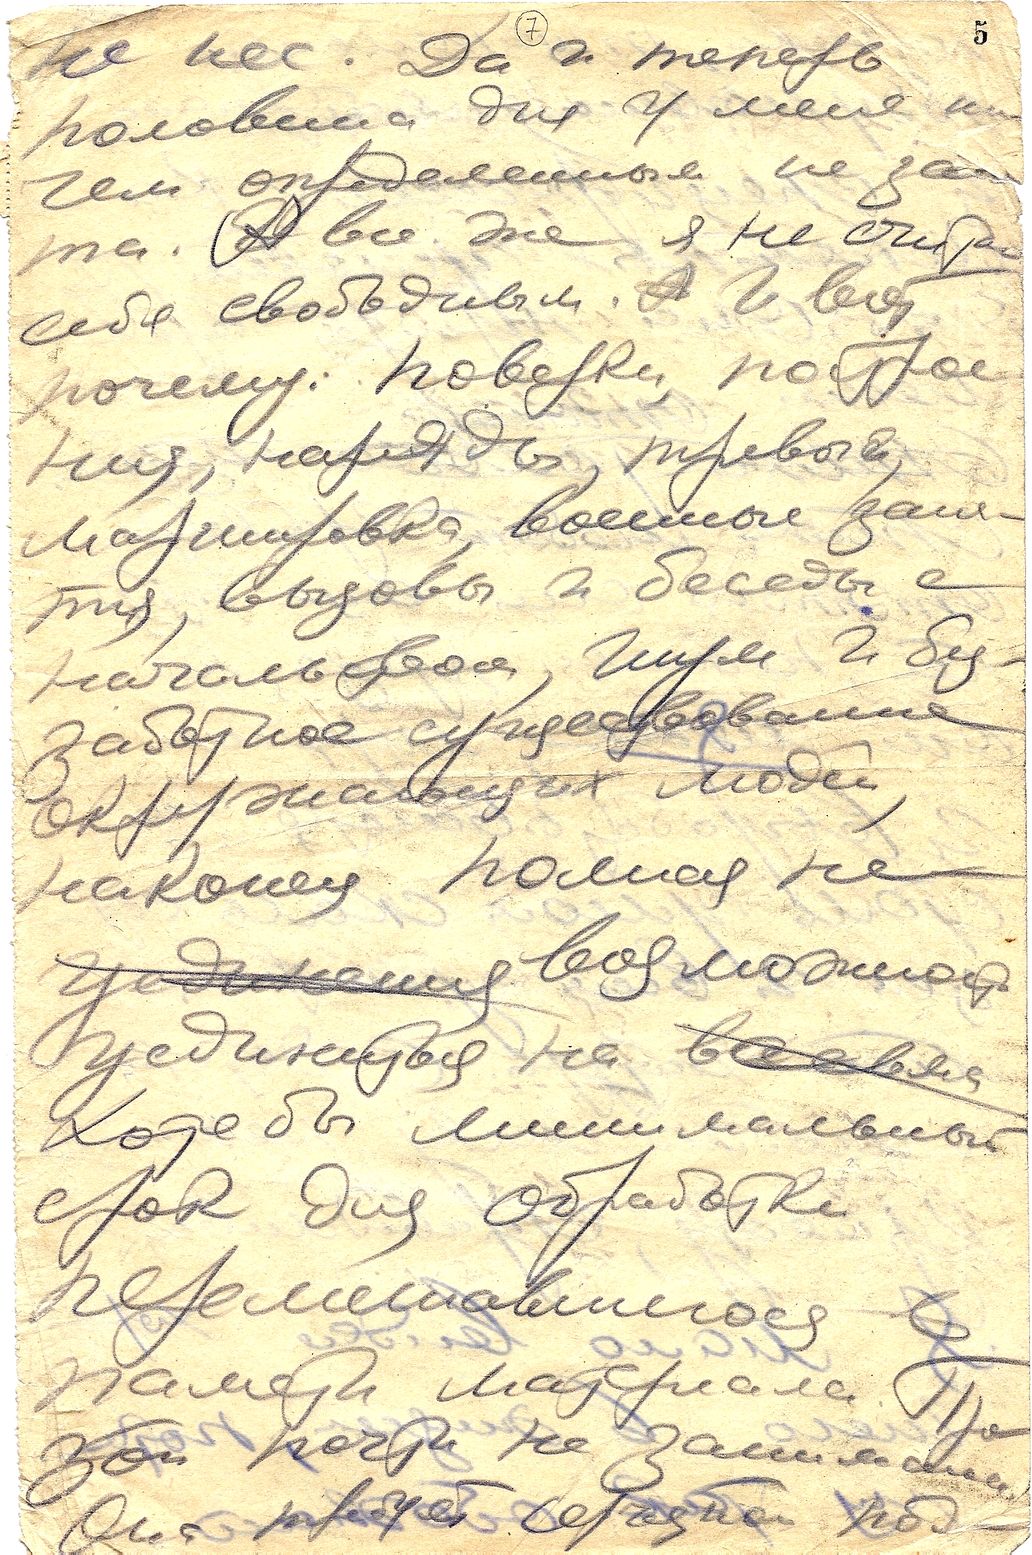 7
5
не нес. Да и теперь
половина дня у меня ни
чем определенным не заня
та. А все же я не считаю
себя свободным. И вот
почему: поверки, построе
ния, наряды, тревоги,
маршировка, военные заня-
тия, вызовы и беседы с
начальством, шум и без-
заботное существование
окружающих людей,
наконец полная не-
уединения возможность
уединиться на
хотя бы минимальный
срок для обработки
перемешавшегося в
памяти материала. Про
зой почти не занимаюсь
Она требует серьезной под-